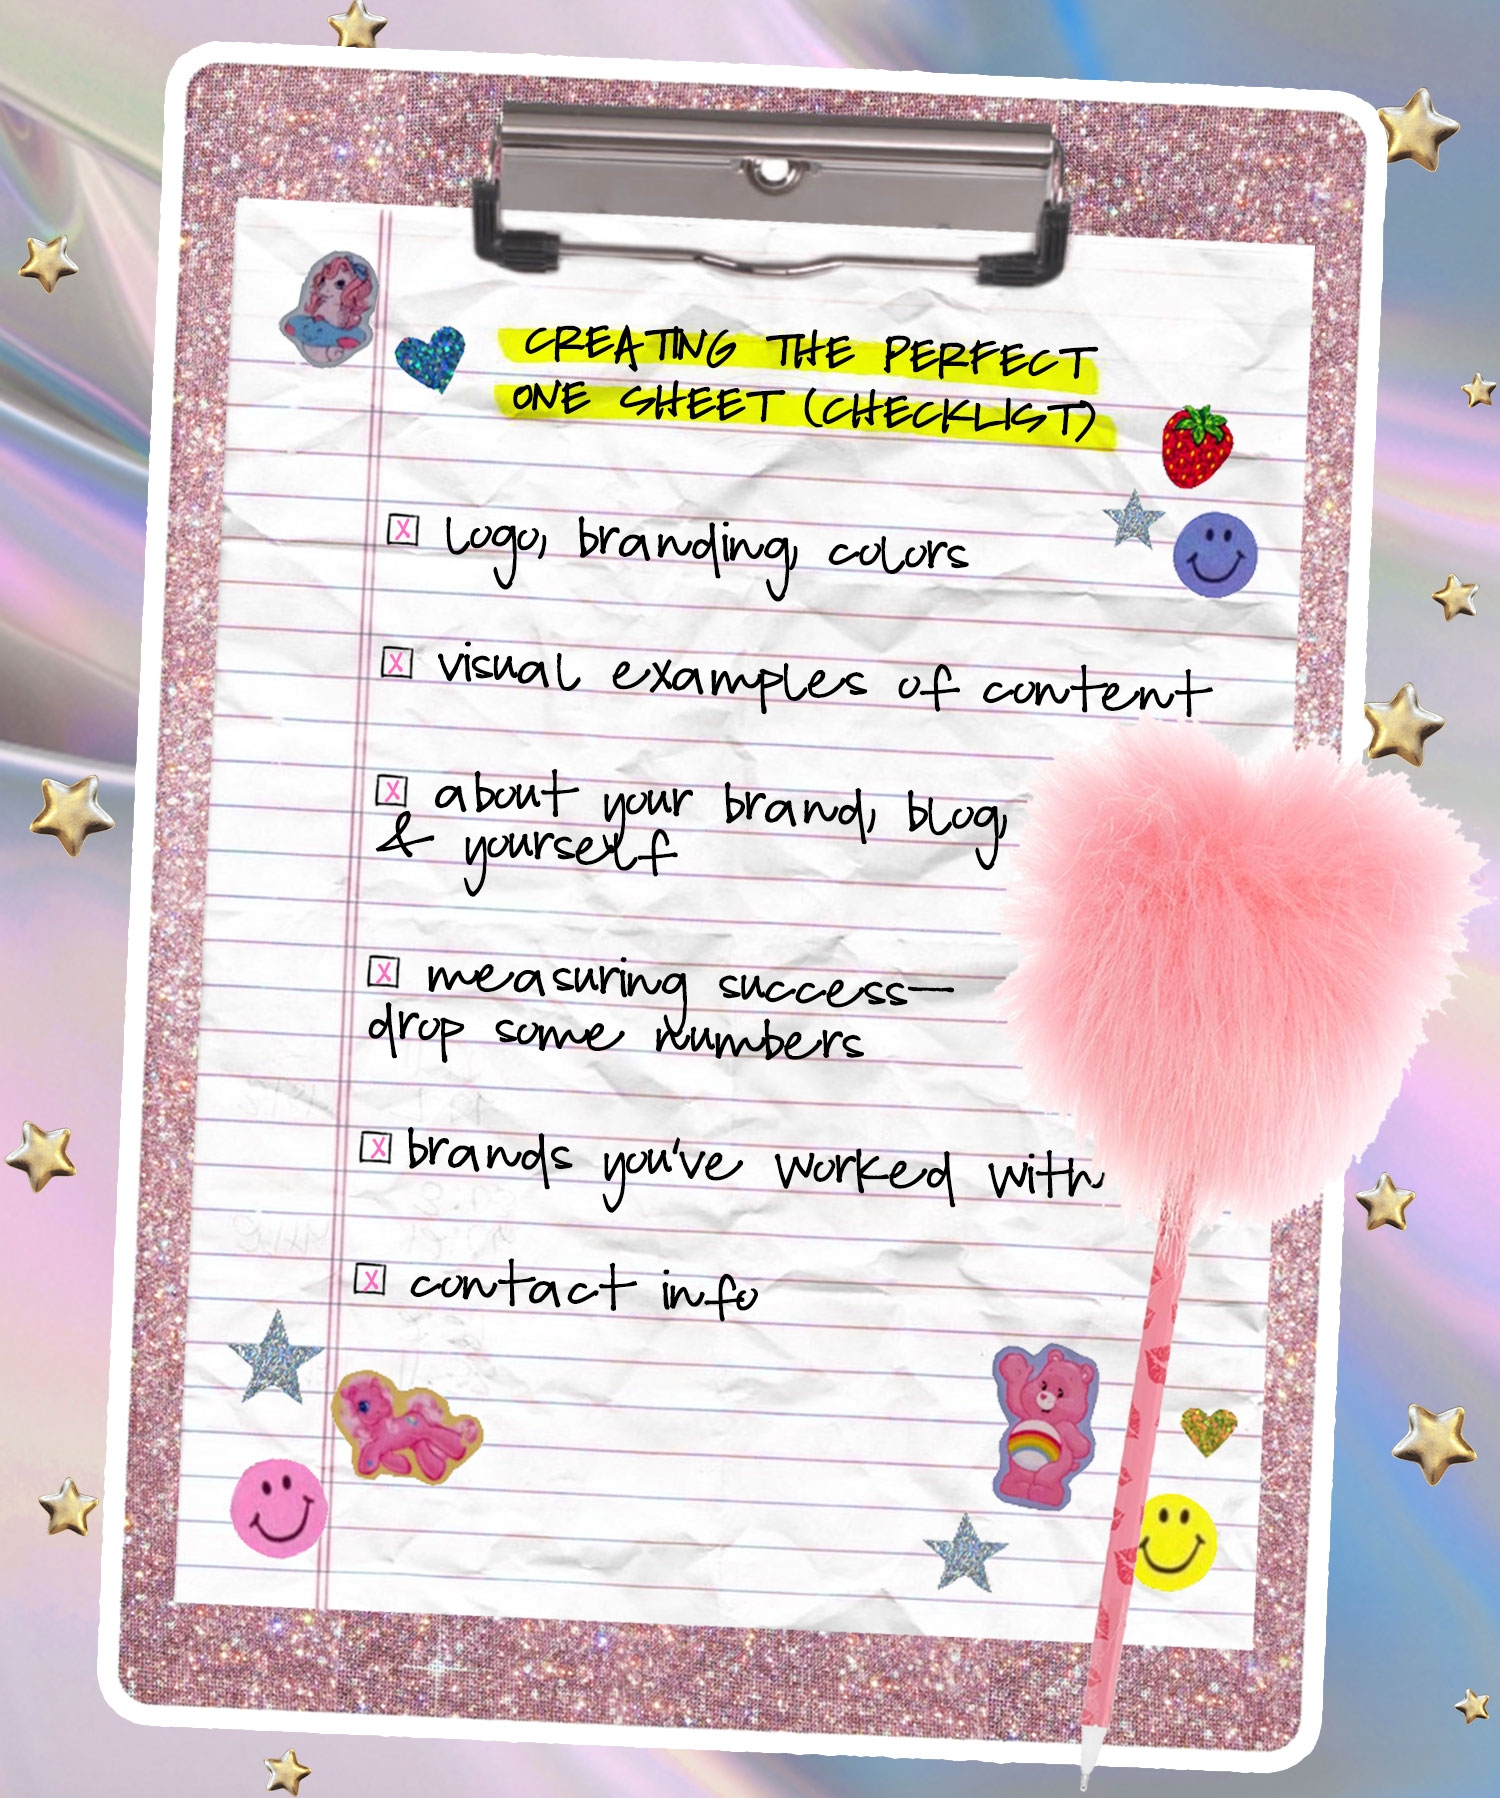 CREATING THE PERFECT
ONE SHEET (CHECKLIST)
logo, branding, colors
visual examples of content
about your brand, blog,
& yourself
measuring success—
drop some numbers
brands you've worked with
contact info